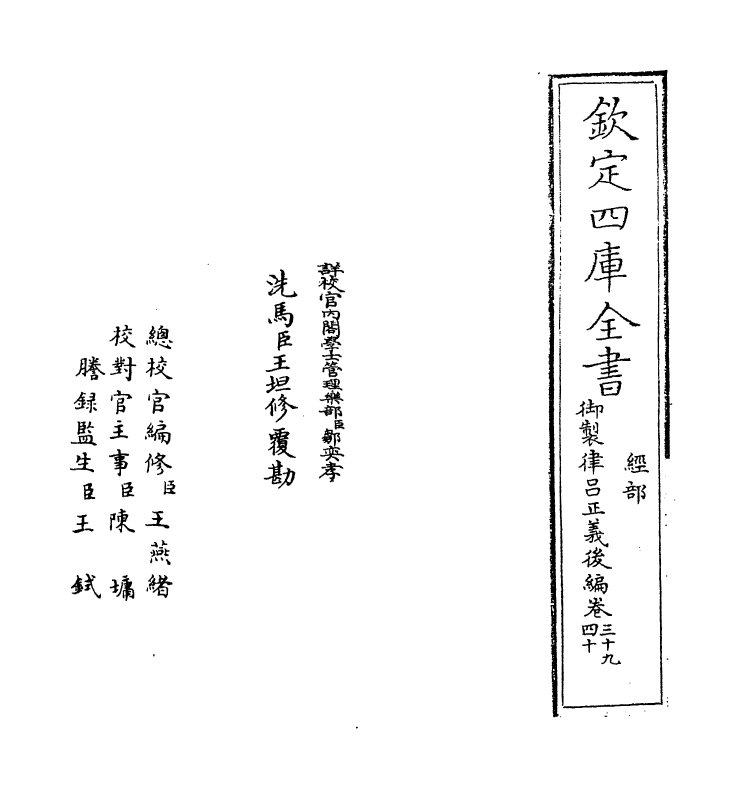 欽定四庫全書
經部
御製律呂正義後編卷三十九
四十
詳校官內閣學士管理樂部臣鄒奕孝
洗馬臣王坦修覆勘
總校官編修臣王燕緒
校對官主事臣陳墉
謄録監生臣王鉽